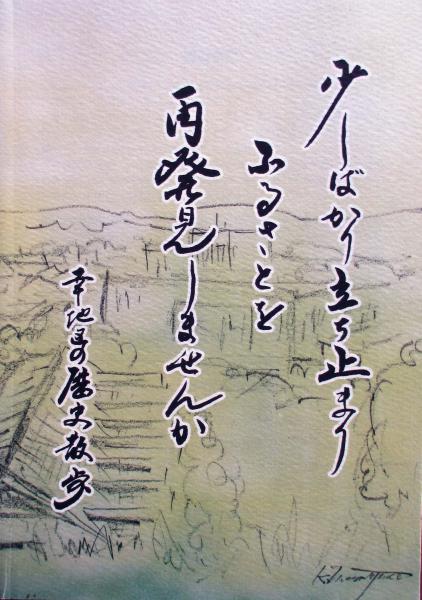 少しばかり立ち止まり
ふるさとを
再発見しませんか
幸地の歴史散歩